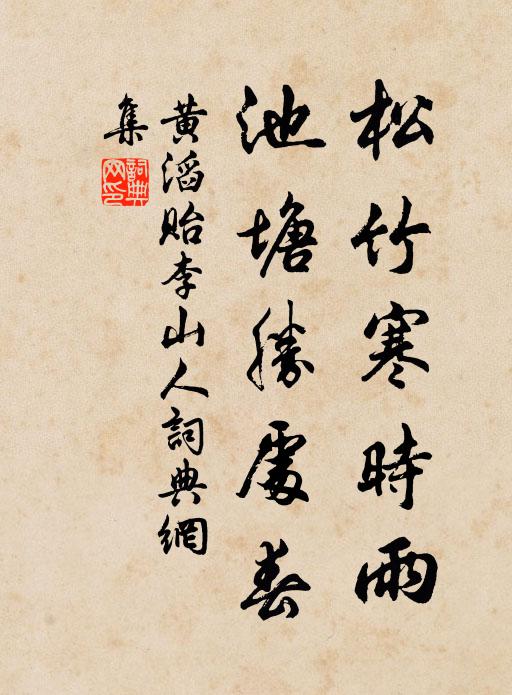 松竹寒時雨
池塘勝處春
黃滔貽李山人詞典網
集
詞典網印